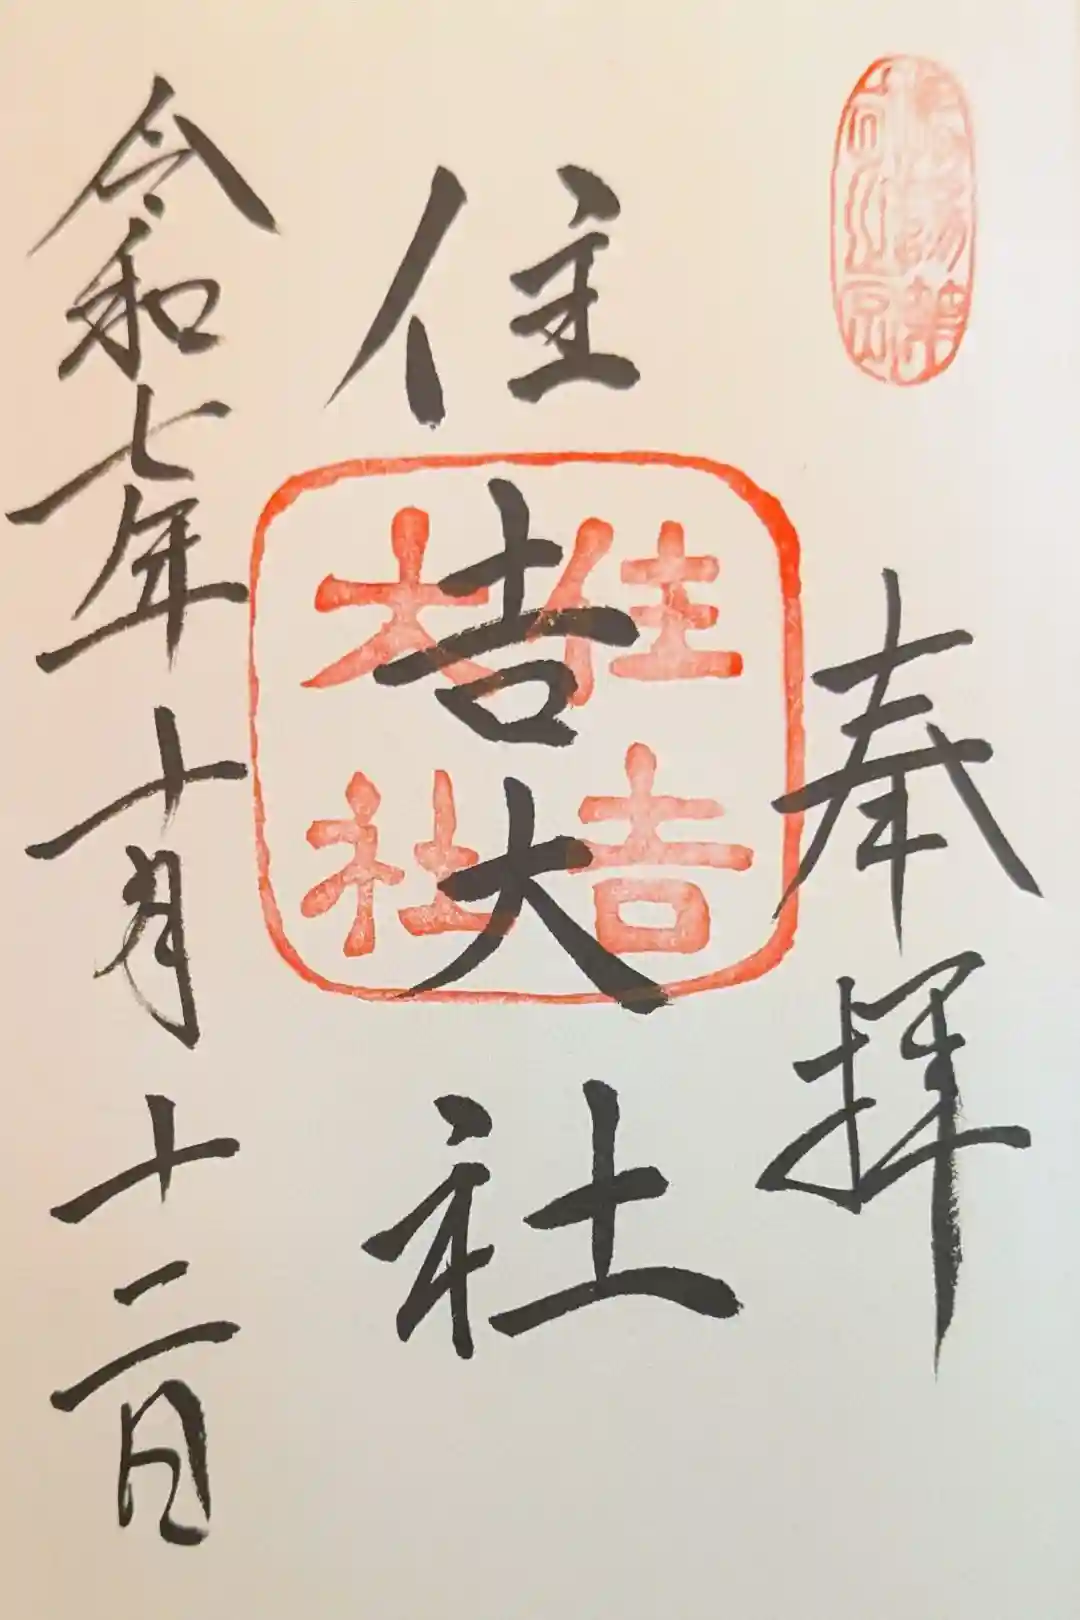 奉拝
住吉大社
住吉
大社
令和七年十月十二日